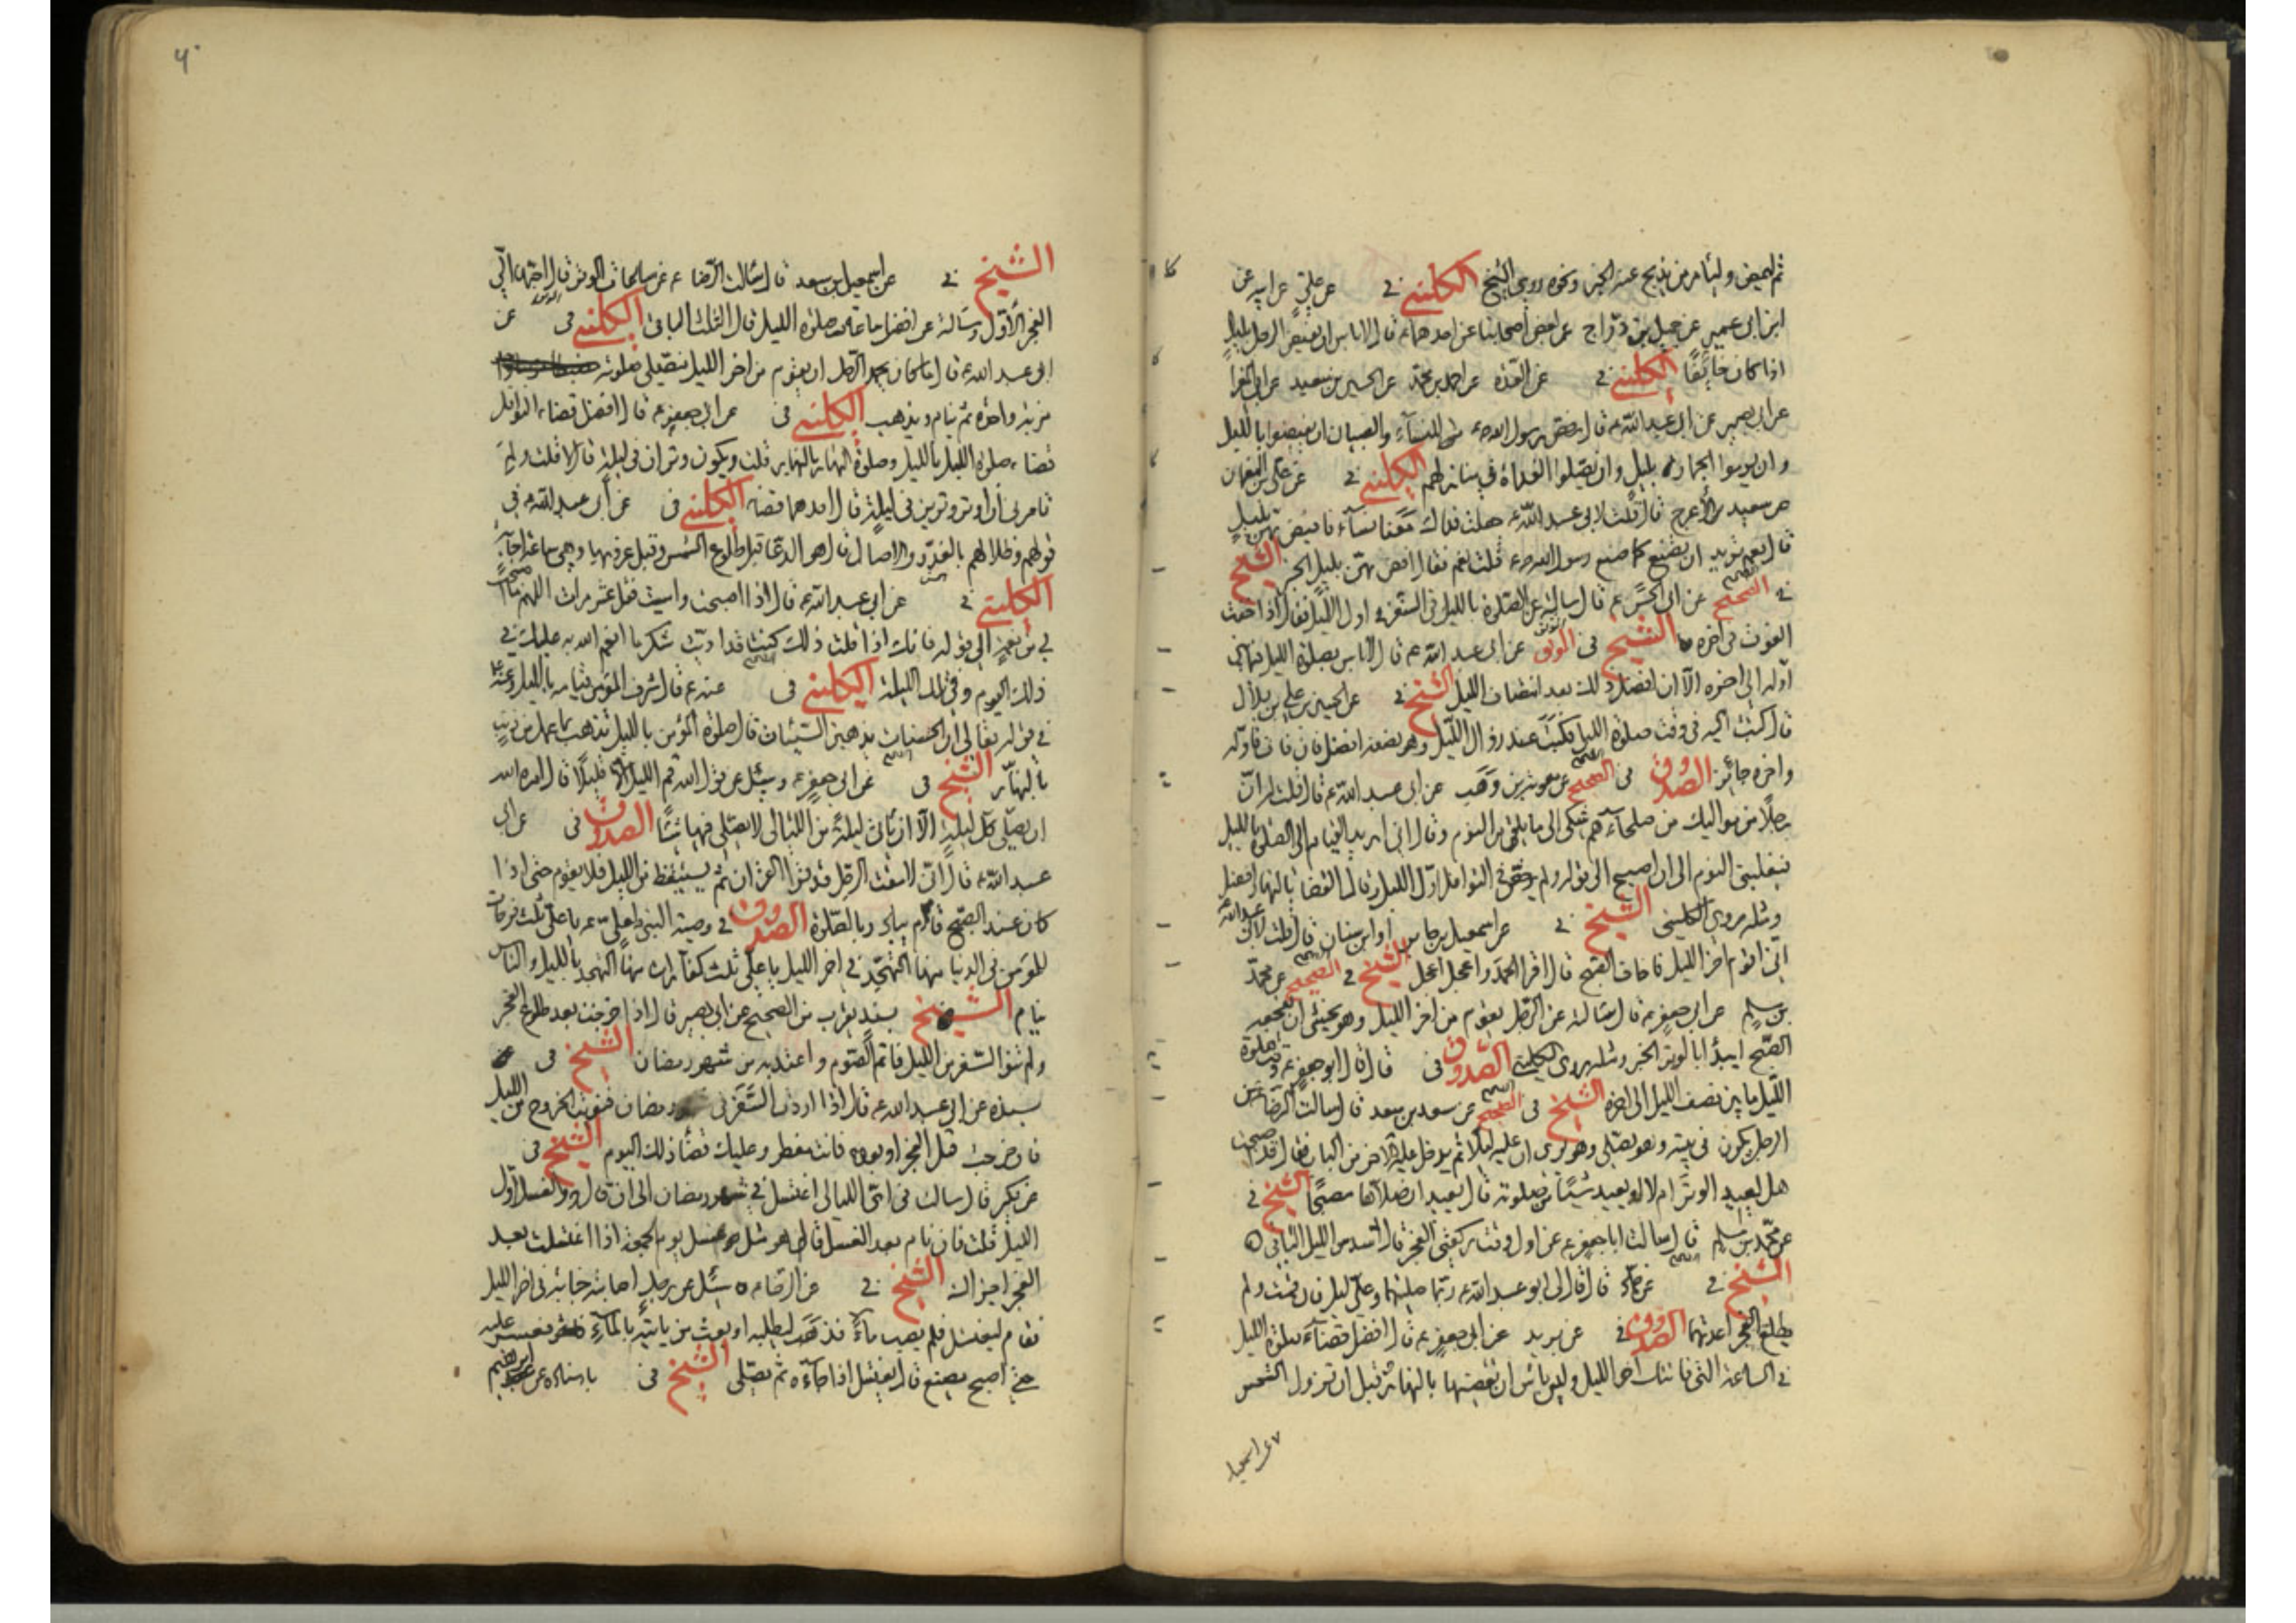 ثم ليمض وليأمر من يذبح عنه الخبر ونحوه روى الشيخ الكليني في عن علي عن ابيه عن
ابن ابي عمير عن جميل بن دراج عن بعض اصحابنا عن احدهما ع قال لا باس ان يفيض الرجل بليل
اذا كان خائفا الكليني في عن العدة عن احمد بن محمد عن الحسين بن سعيد عن
عن ابي بصير عن ابي عبد الله ع قال رخص رسول الله ص للنساء والصبيان ان يفيضوا بالليل
وان يرموا الجمار بليل وان يصلوا الغداة في منازلهم الكليني في عن علي بن النعمان
عن سعيد الأعرج قال قلت لابي عبد الله ع جعلت فداك معنا نساء فافيض بهن بليل
قال نعم تريد ان تصنع كما صنع رسول الله ص قلت نعم فقال افض بهن بليل الخبر الشيخ
في الصحيح عن ابي الحسن ع قال سالته عن الصلوة بالليل في السفر في اول الليل فقال اذا خفت
الفوت في اخره الشيخ في الموثق عن ابي عبد الله ع قال لا باس بصلوة الليل فيما بين
اوله الى اخره الا ان افضل ذلك بعد انتصاف الليل الشيخ في عن الحسين بن علي بن بلال
قال كتبت اليه في وقت صلوة الليل فكتب عند زوال الليل وهو نصفه افضل فان فات فاوله
واخره جائز الصدوق في الصحيح عن معوية بن وهب عن ابي عبد الله ع قال قلت له ان
رجلا من مواليك من صلحائهم شكى الى ما يلقى من النوم وقال اني اريد القيام الى الصلوة بالليل
فيغلبني النوم الى ان اصبح الى قوله ولم يرخص في النوافل اول الليل وقال القضا بالنهار افضل
ومثله روى الكليني الشيخ في عن اسمعيل بن جابر او ابن سنان قال قلت لابي عبد الله ع
اني اقوم اخر الليل فاخاف الصبح قال اقرا الحمد واعجل اعجل الشيخ في الصحيح عن محمد
بن مسلم عن ابي جعفر ع قال سئالته عن الرجل يقوم من اخر الليل وهو يخشى ان يفجاه
الصبح ايبدأ بالوتر الخبر ومثله روى الكليني الصدوق في قال قال ابو جعفر ع وقت صلوة
الليل ما بين نصف الليل الى اخره الشيخ في الصحيح عن سعد بن سعد قال سالت الرضا ع عن
الرجل يكون في بيته وهو يصلي وهو يرى ان عليه ليلا ثم يدخل عليه الاخر من الباب فقال قد اصبحت
هل يعيد الوتر ام لا او يعيد شيئا من صلوته قال يعيد ان صلاها مصبحا الشيخ في
عن محمد بن مسلم قال سالت ابا جعفر ع عن اول وقت ركعتي الفجر قال سدس الليل الباقي
الشيخ في عن حماد قال قال لي ابو عبد الله ع ربما صليتهما وعلي ليل فان قمت ولم
يطلع الفجر اعدتهما الصدوق في عن بريد عن ابي جعفر ع قال افضل قضاء صلوة الليل
في الساعة التي فاتتك اخر الليل وليس باس ان تقضيها بالنهار وقبل ان تزول الشمس
عن اسمعيل
الشيخ في عن اسمعيل بن سعد قال سئالت الرضا ع عن ساعات الوتر قال احبها الي
الفجر الأول وسالته عن افضل ساعات صلوة الليل قال الثلث الباقي الكليني في عن
ابي عبد الله ع قال اما كان يحمد الرجل ان يقوم من اخر الليل فيصلي صلوته
ضربة واحدة ثم ينام ويذهب الكليني في عن ابي جعفر ع قال افضل قضاء النوافل
قضاء صلوة الليل بالليل وصلوة النهار بالنهار قلت ويكون وتران في ليلة قال لا قلت ولم
تامرني ان اوتر وترين في ليلة قال احدهما قضاء الكليني في عن أبي عبد الله ع في
قولهم وظلالهم بالغدو والاصال قال هو الدعا قبل طلوع الشمس وقبل غروبها وهي ساعة اجابة
الكليني في عن ابي عبد الله ع قال اذا اصبحت وامسيت فقل عشر مرات اللهم ما اصبحت
بي من نعمة الى قوله فانك اذا قلت ذلك كنت قد اديت شكر ما انعم الله به عليك في
ذلك اليوم وفي تلك الليلة الكليني في عنه ع قال شرف المؤمن قيامه بالليل وعنه ع
في قوله تعالى ان الحسنات يذهبن السيئات قال صلوة المؤمن بالليل تذهب بما عمل من ذنب
بالنهار الشيخ في عن ابي جعفر ع وسئل عن قول الله قم الليل الا قليلا قال امره الله
ان يصلي كل ليلة الا ان ياتي ليلة من الليالي لا يصلي فيها شيئا الصدوق في عن ابي
عبد الله ع قال اني لامقت الرجل قد قرا القرآن ثم يستيقظ من الليل فلا يقوم حتى اذا
كان عند الصبح قام يبادر بالصلوة الصدوق في وصية النبي لعلي ع يا علي ثلث فرحات
للمؤمن في الدنيا منها التهجد في اخر الليل يا علي ثلث كفارات منها التهجد بالليل والناس
نيام الشيخ بسند يقرب من الصحيح عن ابي بصير قال اذا خرجت بعد طلوع الفجر
ولم تنو السفر من الليل فاتم الصوم واعتد به من شهر رمضان الشيخ في
بسنده عن ابي عبد الله ع قال اذا اردت السفر في رمضان فنويت الخروج من الليل
فان خرجت قبل الفجر او بعده فانت مفطر وعليك قضاء ذلك اليوم الشيخ في
عن بكير قال سالت في اي الليالي اغتسل في شهر رمضان الى ان قال والغسل اول
الليل قلت فان نام بعد الغسل قال هو مثل غسل يوم الجمعة اذا اغتسلت بعد
الفجر اجزاك الشيخ في عن الرضا ع سئل عن رجل اصابته جنابة في اخر الليل
فقام ليغتسل فلم يصب ماء فذهب ليطلبه او بعث من ياتيه بالماء فعسر عليه
حتى اصبح يصنع قال يغتسل اذا جاءه ثم يصلي الشيخ في باسناده عن ابرهيم